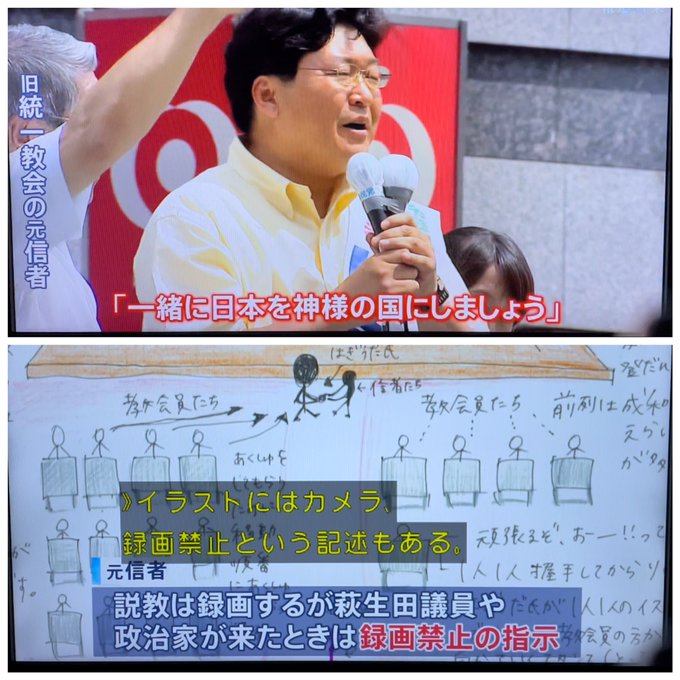 旧統一教会の元信者
「一緒に日本を神様の国にしましょう」
はぎうだ氏
←信者たち
教会員たち
教会員たち、
前列は成和
えらし
あくしゅを
》イラストにはカメラ、
録画禁止という記述もある。
頑張るぞ、おー!!って
1人1人握手してからリ
元信者
説教は録画するが萩生田議員や
政治家が来たときは録画禁止の指示
だ氏が1人1人のイス
教会員の方か